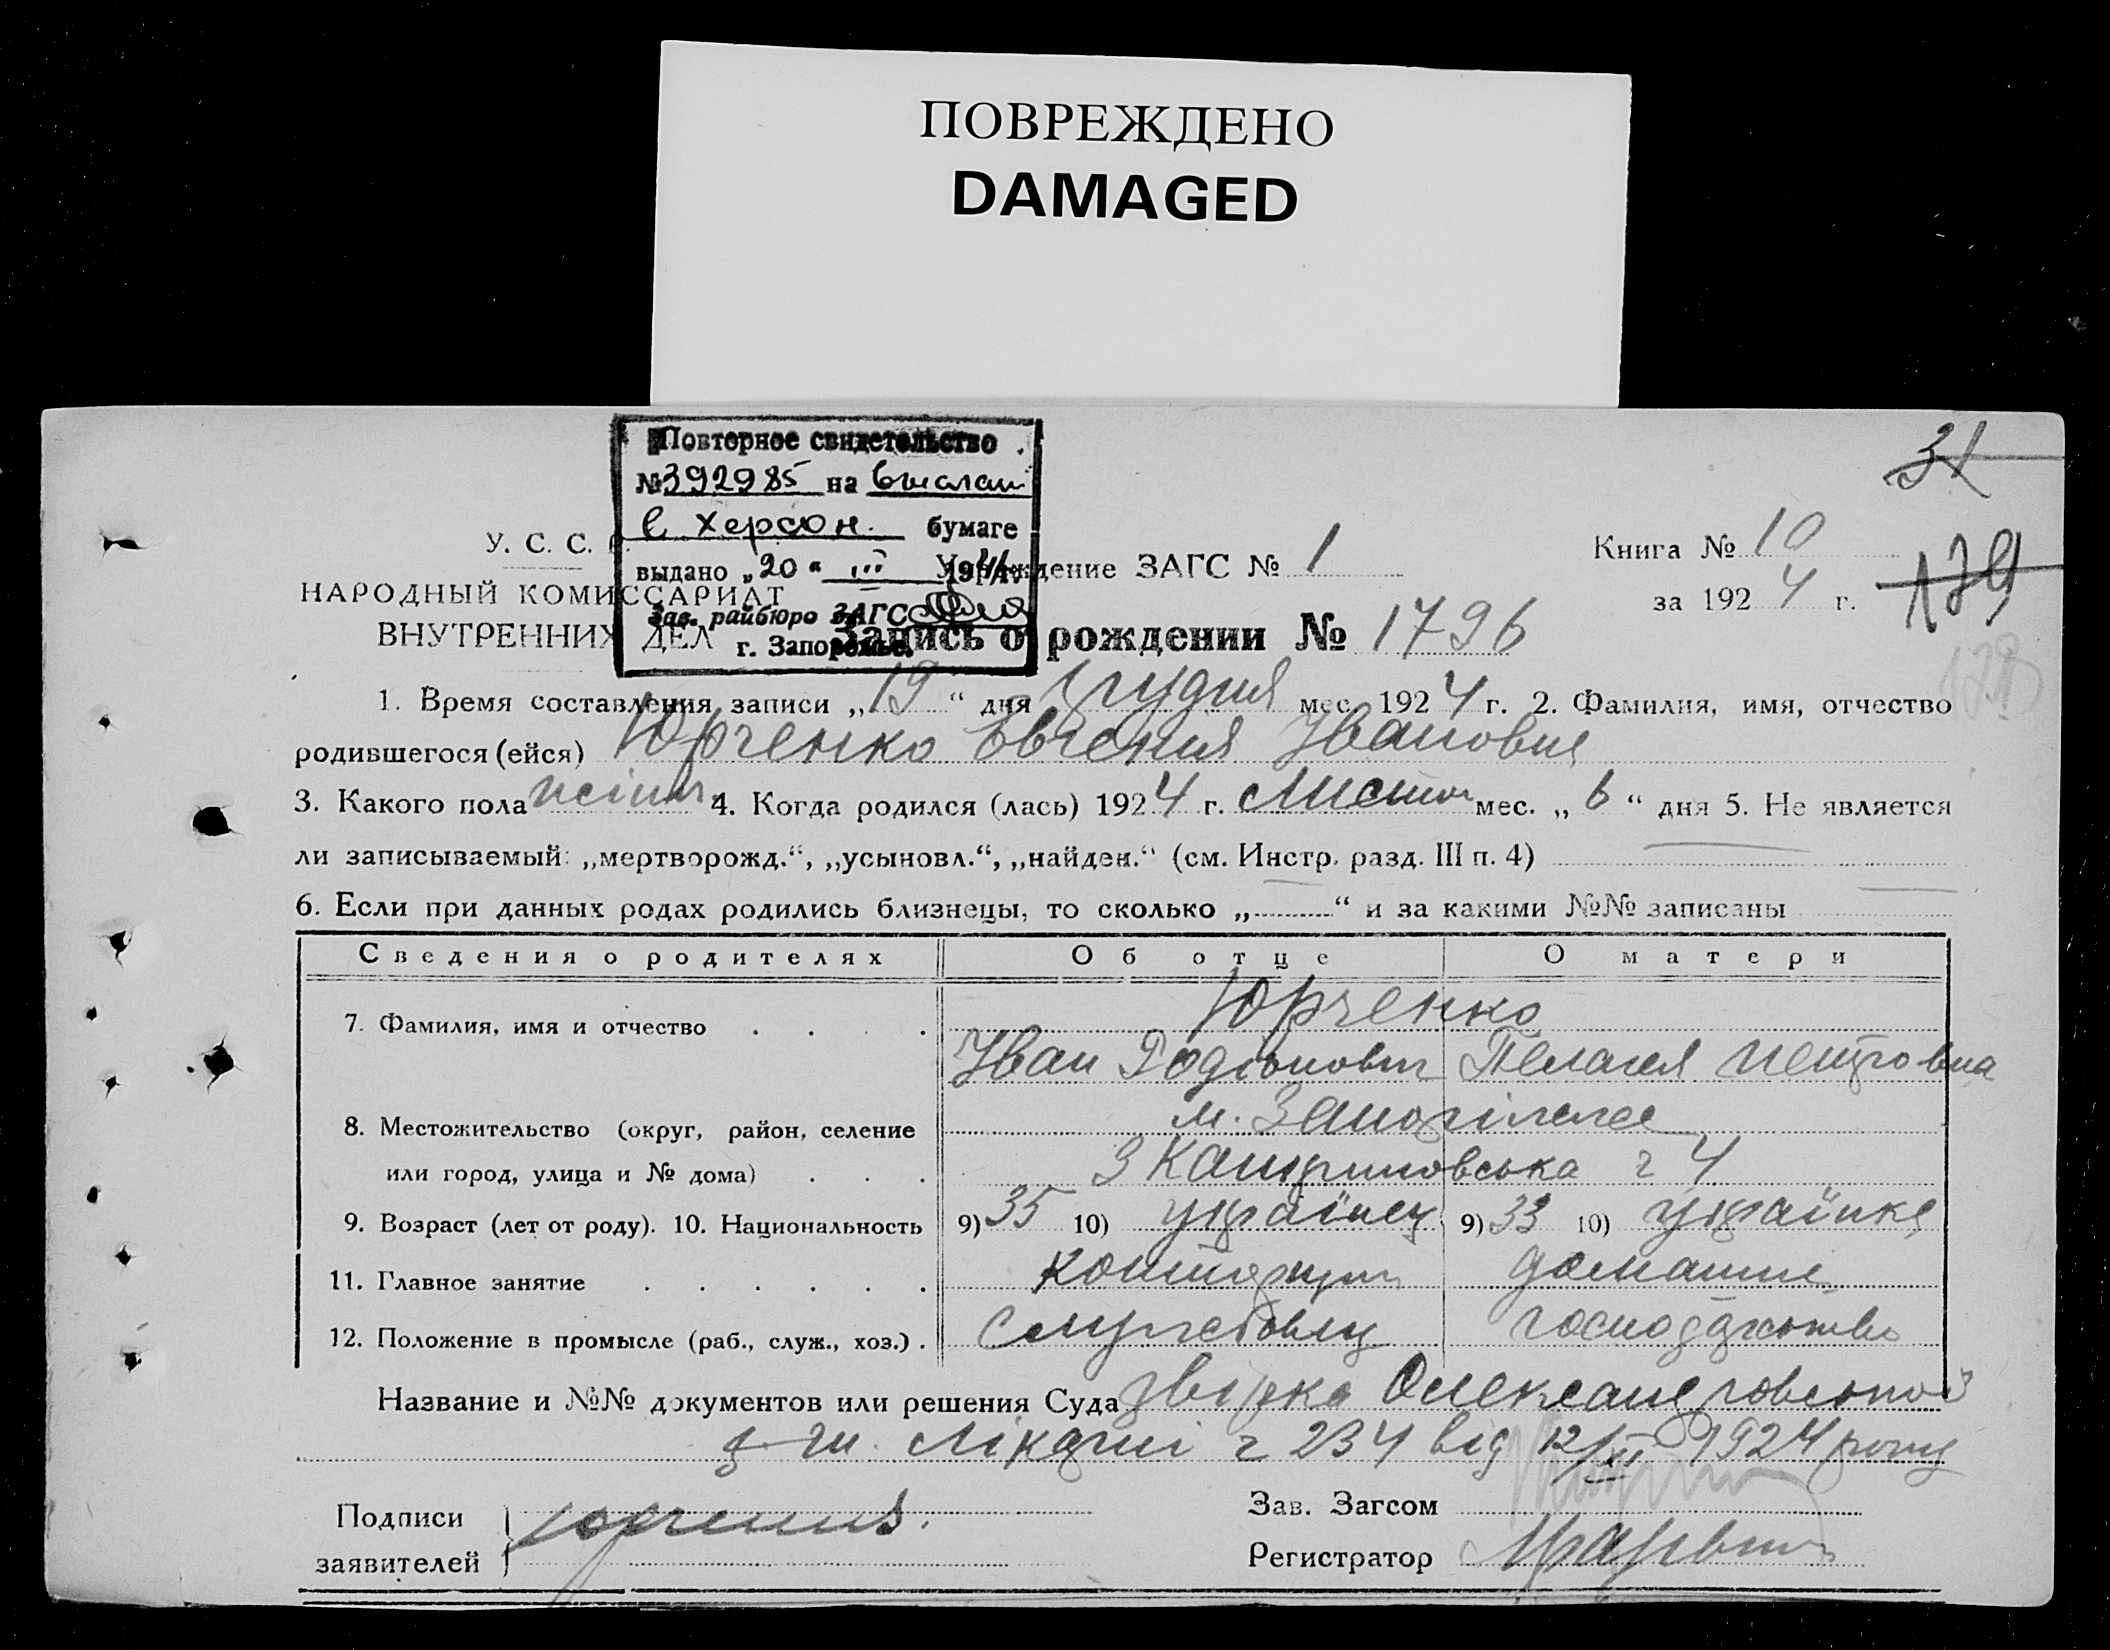 ПОВРЕЖДЕНО
DAMAGED
Повторное свидетельство
№ 392985 на
в. Херсон. бумаге
выдано „20“ III 194
Зав. райбюро ЗАГС
г. Запорожье.
31
У. С. С. Р.
НАРОДНЫЙ КОМИССАРИАТ
ВНУТРЕННИХ ДЕЛ
Учреждение ЗАГС № 1
Книга № 10
за 1924 г.
179
Запись о рождении № 1796
1. Время составления записи „19“ дня грудня мес. 1924 г. 2. Фамилия, имя, отчество
родившегося (ейся) Юрченко Евгения Ивановна
3. Какого пола 4. Когда родился (лась) 1924 г. Листоп мес. „6“ дня 5. Не является
ли записываемый: „мертворожд.“, „усыновл.“, „найден.“ (см. Инстр. разд. III п. 4)
6. Если при данных родах родились близнецы, то сколько „ “ и за какими №№ записаны
Сведения о родителях Об отце О матери
7. Фамилия, имя и отчество Юрченко
Иван Родіонович Пелагея Петровна
8. Местожительство (округ, район, селение м. Запоріжжє
или город, улица и № дома) 4
9. Возраст (лет от роду). 10. Национальность 9) 35 10) українец 9) 33 10) українка
11. Главное занятие домашне
12. Положение в промысле (раб., служ., хоз.) службовец господарство
Название и №№ документов или решения Суда Олександровської
лікарні 234 від 12/XI 1924 року
Подписи
заявителей
Зав. Загсом
Регистратор